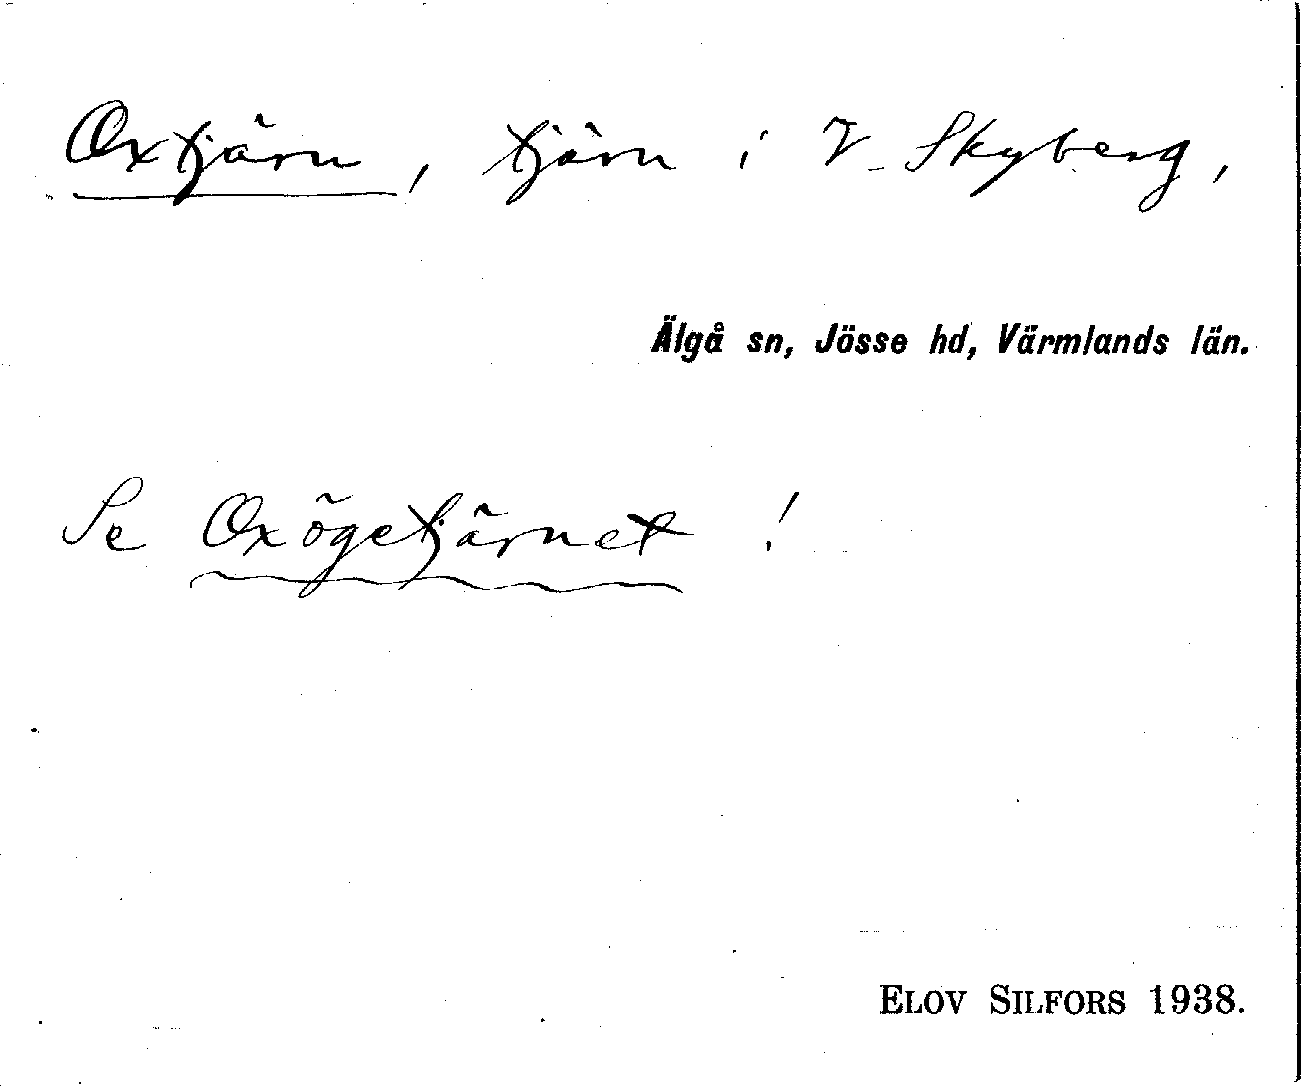 Oxtjärn, tjärn i V. Skyberg,
Älgå sn, Jösse hd, Värmlands län.
Se Oxögetjärnet!
ELOV SILFORS 1938.